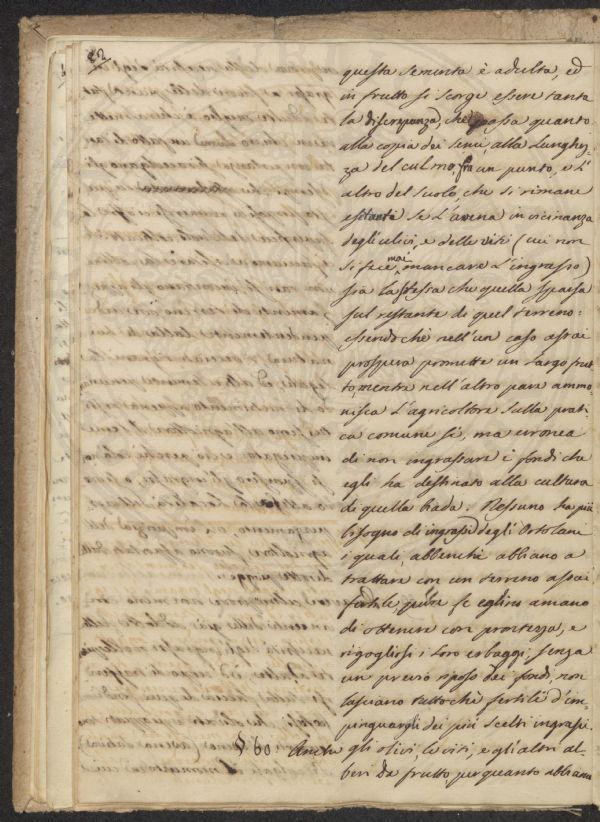 82
questa sementa è adulta, ed
in frutto si scorge essere tanta
la discrepanza, che passa quanto
alla copia dei semi, alla lunghez-
za del culmo, fra un punto, e l'
altro del suolo, che si rimane
esitante se l'avena in vicinanza
degli ulivi, e delle viti (cui non
si fece mai mancare l'ingrasso)
sia la stessa che quella sparsa
sul restante di quel terreno:
essendochè nell'un caso assai
prospera promette un largo frut-
to, mentre nell'altro pare ammo-
nisca l'agricoltore sulla prati-
ca comune sì, ma erronea
di non ingrassare i fondi che
egli ha destinato alla cultura
di quella biada. Nessuno ha più
bisogno di ingrassi degli Ortolani
i quali, abbenchè abbiano a
trattare con un terreno assai
fertile, pure se eglino amano
di ottenere con prontezza, e
rigogliosi i loro erbaggi, senza
un preciso riposo dei fondi, non
lasciano tuttochè fertili d'im-
pinguargli dei più scelti ingrassi.
§ 60: Anche gli olivi, le viti, e gli altri al-
beri da frutto, per quanto abbiano